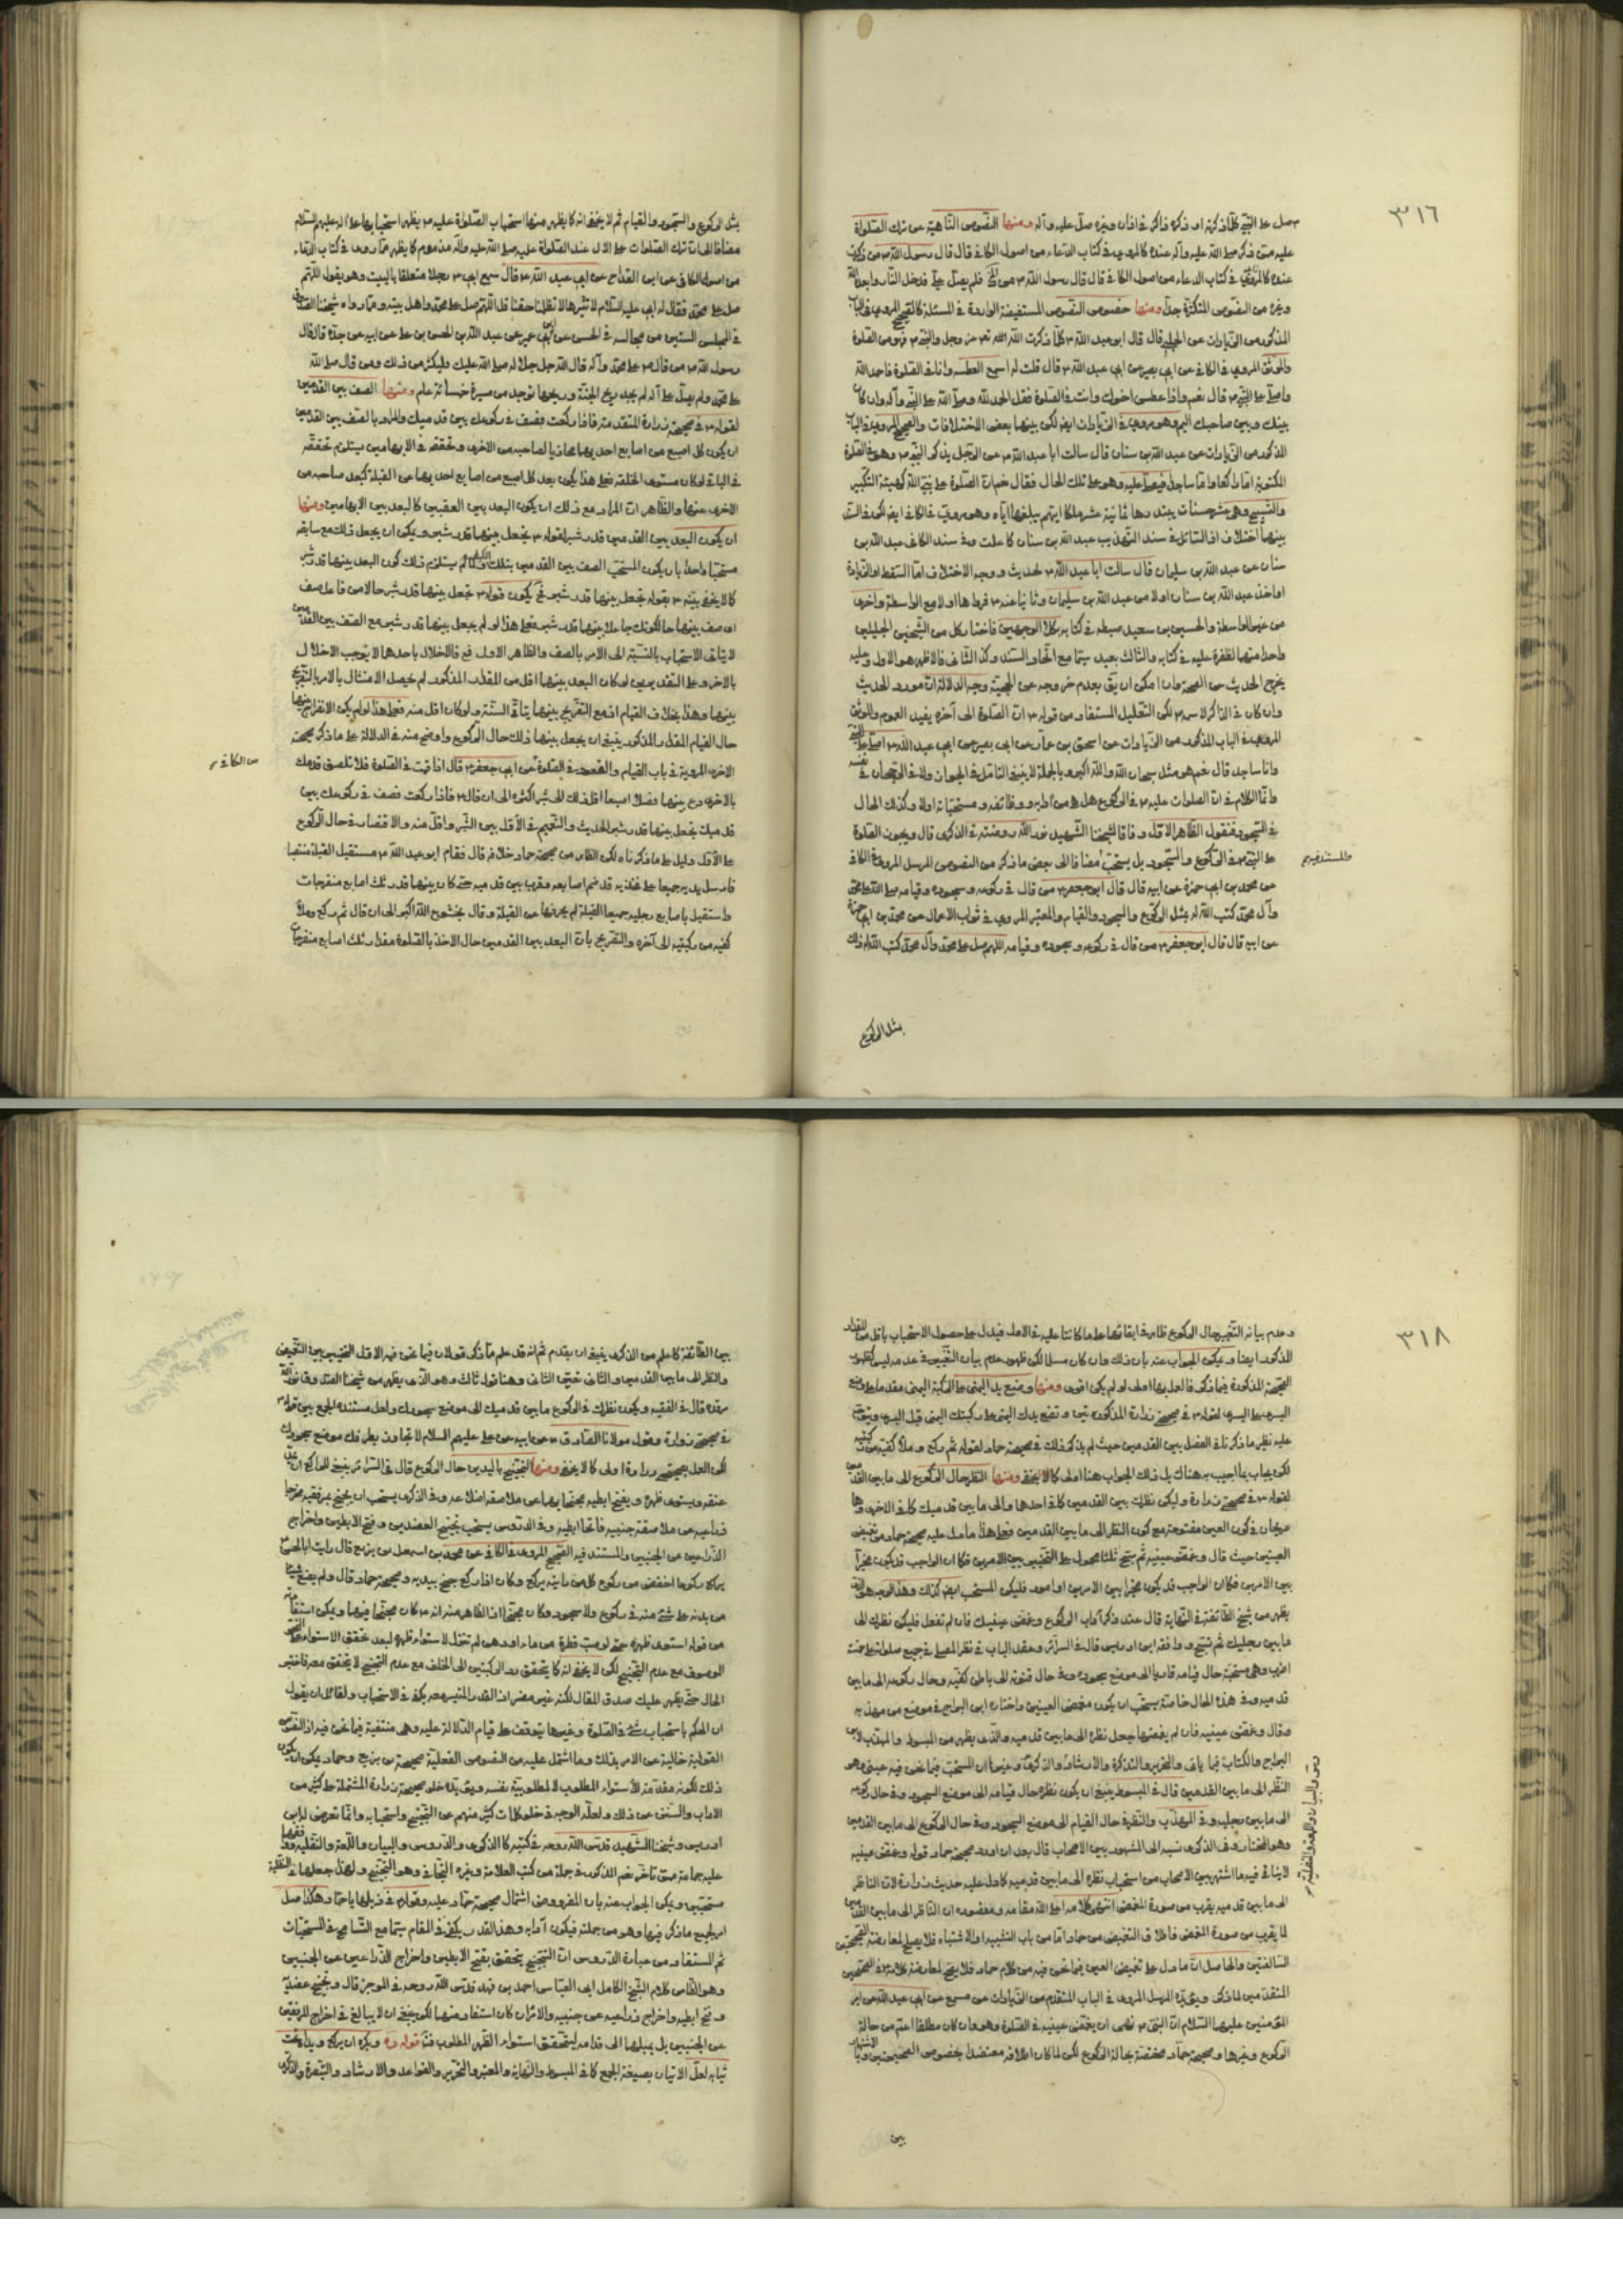 ٣١٦
صل على النبي كلما ذكرته او ذكره ذاكر في اذان وغيره صل عليه وآله ومنها النصوص الناهية عن ترك الصلوة
عليه متى ذكر صلى الله عليه وآله عنده كالمروي في كتاب الدعاء من اصول الكافي قال قال رسول الله ص من ذكرت
عنده كالمروي في كتاب الدعاء من اصول الكافي قال قال رسول الله ص من فلم يصل علي فدخل النار وابعده الله
وغيره من النصوص المتكثرة جدا ومنها خصوص النصوص المستفيضة الواردة في المسئلة كالصحيح المروي في الباب
المذكور من الزيادات عن الحلبي قال قال ابو عبد الله ع كلما ذكرت الله عز وجل والنبي ص فهو من الصلوة
والموثق المروي في الكافي عن ابي بصير عن ابي عبد الله ع قال قلت له اسمع العطسة وانا في الصلوة فاحمد الله
واصلي على النبي ص قال نعم واذا عطس اخوك وانت في الصلوة فقل الحمد لله وصلى الله على النبي وآله وان كان
بينك وبين صاحبك اليم وهو مروي في الزيادات ايض لكن بينهما بعض الاختلافات والصحيح المروي في الباب
المذكور من الزيادات عن عبد الله بن سنان قال سالت ابا عبد الله ع عن الرجل يذكر النبي ص وهو في الصلوة
المكتوبة اما راكعا واما ساجدا فيصلي عليه وهو على تلك الحال فقال نعم ان الصلوة على نبي الله كهيئة التكبير
والتسبيح وهي عشر حسنات يبتدرها ثمانية عشر ملكا ايهم يبلغها اياه وهو مروي في الكافي ايض لكن في السند
بينهما اختلاف اذ السائل في سند التهذيب عبد الله بن سنان كما علمت وفي سند الكافي عبد الله بن
سنان عن عبد الله بن سليمان قال سالت ابا عبد الله ع الحديث ووجه الاختلاف اما السقط او الزيادة
او اخذ عبد الله بن سنان اولا من عبد الله بن سليمان وثانيا عنه ع فرواها اولا مع الواسطة واخرى
من غير الواسطة والحسين بن سعيد ضبطه في كتابه بكلا الوجهين فاختار كل من الشيخين الجليلين
واحدا منهما لظفره عليه في كتابه والثالث بعيد سيما مع اتحاد السند وكذا الثاني فالاظهر هو الاول وعليه
يخرج الحديث عن الصحة وان امكن ان يق بعدم خروجه عن الحجية وجه الدلالة ان مورد الحديث
وان كان في الذاكر لاسمه ص لكن التعليل المستفاد من قوله ع ان الصلوة الى آخره يفيد العموم والموثق
المروي في الباب المذكور من الزيادات عن اسحق بن عمار عن ابي بصير عن ابي عبد الله ع اصلي على النبي
وانا ساجد قال نعم هو مثل سبحان الله والله اكبر وبالجملة لا ينبغي التامل في الجواز ولا في الرجحان في نفسه
وانما الكلام في ان الصلوات عليه ص في الركوع هل هي من آدابه ووظائفه ومستحباته اولا وكذلك الحال
في السجود فنقول الظاهر الاول وفاقا لشيخنا الشهيد نور الله روضته في الذكرى قال ويجوز الصلوة
على النبي ص في الركوع والسجود بل يستحب مضافا الى بعض ما ذكر من النصوص المرسل المروي في الكافي
عن محمد بن ابي حمزة عن ابيه قال قال ابو جعفر ع من قال في ركوعه وسجوده وقيامه صلى الله على محمد
وآل محمد كتب الله له بمثل الركوع والسجود والقيام والمعتبر المروي في ثواب الاعمال عن محمد بن ابي حمزة
عن ابيه قال قال ابو جعفر ع من قال في ركوعه وسجوده وقيامه اللهم صل على محمد وآل محمد كتب الله له ذلك
والمستند فيهم
بمثل الركوع
بمثل الركوع والسجود والقيام ثم لا يخفى انه كما يظهر منها استحباب الصلوة عليه ص يظهر استحبابها على آله عليهم السلام
مضافا الى ان ترك الصلوات على الآل عند الصلوة عليه صلى الله عليه وآله مذموم كما يظهر مما روي في كتاب الدعاء
من اصول الكافي عن ابن القداح عن ابي عبد الله ع قال سمع ابي ع رجلا متعلقا بالبيت وهو يقول اللهم
صل على محمد فقال له ابي عليه السلام لا تبترها لا تظلمنا حقنا قل اللهم صل على محمد واهل بيته ومما رواه شيخنا الصدوق
في المجلس الستين من مجالسه في الحسن عن ابن ابي عمير عن عبد الله بن الحسن بن علي عن ابيه عن جده قال قال
رسول الله ص من قال صلى الله على محمد وآله قال الله جل جلاله صلى الله عليك فليكثر من ذلك ومن قال صلى الله
على محمد ولم يصل على آله لم يجد ريح الجنة وريحها توجد من مسيرة خمسمائة عام ومنها الصف بين القدمين
لقوله ع في صحيحة زرارة المتقدمة فاذا ركعت فصف في ركوعك بين قدميك والمراد بالصف بين القدمين
ان يكون كل اصبع من اصابع احديهما محاذيا لصاحبه من الاخرى وتحققه في الابهامين يستلزم تحققه
في الباقي لو كان مستوي الخلقة فعلى هذا يكون بعد كل اصبع من اصابع احديهما عن القبلة كبعد صاحبه من
الاخرى عنها والظاهر ان المراد مع ذلك ان يكون البعد بين العقبين كالبعد بين الابهامين ومنها
ان يكون البعد بين القدمين قدر شبر لقوله ع تجعل بينهما قدر شبر ويمكن ان يجعل ذلك مع سابقه
مستحبا واحدا بان يكون المستحب الصف بين القدمين بتلك لم يستلزم ذلك كون البعد بينهما قدر شبر
كما لا يخفى بينه ع بقوله تجعل بينهما قدر شبر فح يكون قوله ع تجعل بينهما قدر شبر حالا من فاعل صف
اي صف بينهما حالكونك جاعلا بينهما قدر شبر فعلى هذا لو لم يجعل بينهما قدر شبر مع الصف بين القدمين
لا يتاتى الاستحباب بالنسبة الى الامر بالصف والظاهر الاول فح فالاخلال باحدهما لا يوجب الاخلال
بالاخر وعلى التقديرين لو كان البعد بينهما اقل من المقدار المذكور لم يحصل الامتثال بالامر بالتفريج
بينهما وهذا بخلاف القيام اذ مع التفريج بينهما يتاتى السنة ولو كان اقل منه فعلى هذا لو لم يكن الانفراج بينهما
حال القيام المقدار المذكور ينبغي ان يجعل بينهما ذلك حال الركوع واوضح منه في الدلالة على ما ذكر صحيحته
الاخرى المروية في باب القيام والقعود في الصلوة عن ابي جعفر ع قال اذا قمت في الصلوة فلا تلصق قدمك
بالاخرى دع بينهما فصلا اصبعا اقل ذلك الى شبر اكثره الى ان قال ع فاذا ركعت فصف في ركوعك بين
قدميك تجعل بينهما قدر شبر الحديث والتعميم في الاول بين الشبر واقل منه والاقتصار في حال الركوع
على الاول دليل على ما ذكرناه لكن الظاهر من صحيحة حماد خلافه قال فقام ابو عبد الله ع مستقبل القبلة منتصبا
فارسل يديه جميعا على فخذيه قد ضم اصابعه وقرب بين قدميه حتى كان بينهما قدر ثلث اصابع منفرجات
واستقبل باصابع رجليه جميعا القبلة لم يحرفها عن القبلة وقال بخشوع الله اكبر الى ان قال ثم ركع وملأ
كفيه من ركبتيه الى آخره والتصريح بان البعد بين القدمين حال الاخذ بالصلوة مقدار ثلث اصابع منفرجات
من الكافي
٣١٨
وعدم بيانه التغيير حال الركوع ظاهر في ابقائهما على ما كانتا عليه في الاول فيدل على حصول الاستحباب باقل من المقدار
المذكور ايضا ويمكن الجواب عنه بان ذلك وان كان مسلما لكن ظهور عدم بيان التغيير في عدمه ليس كظهور
الصحيحة المذكورة فيما ذكر فالعمل بها اولى لو لم يكن اقوى ومنها وضع يد اليمنى على الركبة اليمنى مقدما على وضع
اليسرى على اليسرى لقوله ع في صحيحة زرارة المذكورتين وتضع يدك اليمنى على ركبتك اليمنى قبل اليسرى
عليه نظير ما ذكرنا في الفصل بين القدمين حيث لم يذكر ذلك في صحيحة حماد لقوله ثم ركع وملأ كفيه من ركبتيه
لكن يجاب بما اجيب به هناك بل ذلك الجواب هنا اولى كما لا يخفى ومنها النظر حال الركوع الى ما بين القدمين
لقوله ع في صحيحة زرارة وليكن نظرك بين القدمين كما في احدهما والى ما بين قدميك كما في الاخرى وهما
صريحان في كون العين مفتوحة مع كون النظر الى ما بين القدمين فعلى هذا ما دل عليه صحيحة حماد من تغميض
العينين حيث قال وغمض عينيه ثم سبح ثلثا محمول على التخيير بين الامرين فكما ان الواجب قد يكون مخيرا
بين الامرين فكما ان الواجب قد يكون مخيرا بين الامرين او امور فليكن المستحب ايض كذلك وهذا الوجه هو الذي
يظهر من شيخ الطائفة في النهاية قال عند ذكر آداب الركوع وغمض عينيك فان لم تفعل فليكن نظرك الى
ما بين رجليك ثم تسبح ووافقه ابن ادريس قال في السرائر وعقد الباب في نظر المصلي في جميع صلواته على خمسة
اضرب وهي مستحبة حال قيامه قاريا الى موضع سجوده وفي حال قنوته الى باطن كفيه وحال ركوعه الى ما بين
قدميه وفي هذه الحال خاصة يستحب ان يكون مغمض العينين واختار ابن البراج في موضع من مهذبه
وقال وغمض عينيه فان لم يغمضهما جعل نظره الى ما بين قدميه والذي يظهر من المبسوط والمهذب لابن
البراج والكتاب فيما ياتي والتحرير والتذكرة والارشاد والذكرى وغيرها ان المستحب فيما نحن فيه عيني وهو
النظر الى ما بين القدمين قال في المبسوط ينبغي ان يكون نظره حال قيامه الى موضع السجود وفي حال ركوعه
الى ما بين رجليه وفي المهذب والنظر في حال القيام الى موضع السجود وفي حال الركوع الى ما بين القدمين
وهو المختار وفي الذكرى نسبه الى المشهور بين الاصحاب قال بعد ان اورد صحيحة حماد قوله وغمض عينيه
لا ينافيه ما اشتهر بين الاصحاب من استحباب نظره الى ما بين قدميه كما دل عليه حديث زرارة لان الناظر
الى ما بين قدميه يقرب من صورة المغمض انتهى كلامه اعلى الله مقامه ومقصوده ان الناظر الى ما بين القدمين
لما يقرب من صورة المغمض فاطلاق التغميض من حماد اما من باب التشبيه او الاشتباه فلا يصلح لمعارضة الصحيحتين
السالفتين والحاصل ان ما دل على تغميض العين فيما نحن فيه من كلام حماد فلا يصلح لمعارضة كلامه ع في الصحيحتين
المتقدمتين لما ذكر ويؤيده المرسل المروي في الباب المتقدم من الزيادات عن مسمع عن ابي عبد الله عن امير
المؤمنين عليهما السلام ان النبي ص نهى ان يغمض عينيه في الصلوة وهو وان كان مطلقا اعم من حالة
الركوع وغيرها وصحيحة حماد مختصة بحالة الركوع لكن لما كان اطلاقه معتضدا بخصوص الصحيحتين وبالاشتهار
س والبيان واللمعة والنفلية
بين
بين الطائفة كما علم من الذكرى ينبغي ان يقدم ثم انه قد علم مما ذكر قولان فيما نحن فيه الاول التخيير بين التغميض
والنظر الى ما بين القدمين والثاني تعيين الثاني وهنا قول ثالث وهو الذي يظهر من شيخنا الصدوق نور الله
مرقده قال في الفقيه ويكون نظرك في الركوع ما بين قدميك الى موضع سجودك ولعل مستنده الجمع بين قوله ع
في صحيحة زرارة وقول مولانا الصادق ع عن ابيه عن علي عليهم السلام لا تجاوز بطرفك موضع سجودك
لكن العمل بصحيحتي زرارة اولى كما لا يخفى ومنها التجنيح باليدين حال الركوع قال في السرائر ينبغي للراكع ان يمد
عنقه ويسوي ظهره ويفتح ابطيه مجنحا بهما عن ملاصقة اضلاعه وفي الذكرى يستحب ان يجنح بمرفقيه مخرجا
ذراعيه عن ملاصقة جنبيه فاتحا ابطيه وفي الدروس يستحب تجنيح العضدين وفتح الابطين واخراج
الذراعين عن الجنبين والمستند فيه الصحيح المروي في الكافي عن محمد بن اسمعيل بن بزيع قال رايت ابا الحسن ع
يركع ركوعا اخفض من ركوع كل من رايته يركع وكان اذا ركع جنح بيديه وصحيحة حماد قال ولم يضع شيئا
من بدنه على شئ منه في ركوع ولا سجود وكان مجنحا اذ الظاهر منه انه ع كان مجنحا فيهما ويمكن استفادته
من قوله استوى ظهره حتى لو صب قطرة من ماء او دهن لم تزل لاستواء ظهره لبعد تحقق الاستواء
الموصوف مع عدم التجنيح لكن لا يخفى انه كما يتحقق رد الركبتين الى الخلف مع عدم التجنيح لا يتحقق معه فاختبر
الحال حتى يظهر عليك صدق المقال لكنه غير مضر اذ القدر المتيسر معه يكفي في الاستحباب ولقائل ان يقول
ان الحكم باستحباب شئ في الصلوة وغيرها يتوقف على قيام الدلالة عليه وهي منتفية فيما نحن فيه اذ النصوص
القولية خالية عن الامر بذلك وما اشتمل عليه من النصوص الفعلية صحيحة بن بزيع وحماد ويمكن ان يكون
ذلك لكونه مقدمة للاستواء المطلوب لا لمطلوبيته بنفسه ويؤيده خلو صحيحة زرارة المشتملة على كثير من
الآداب والسنن عن ذلك ولعله الوجه في خلو كلمات كثير منهم عن التجنيح واستحبابه وانما تعرض له ابن
ادريس وشيخنا الشهيد قدس الله روحه في كتبه كالذكرى والدروس والبيان واللمعة والنفلية ووافقهما
عليه جماعة ممن تاخر نعم المذكور في جملة من كتب العلامة وغيره التجافي وهو التجنيح ولهذا جعلهما في النفلية
مستحبين ويمكن الجواب عنه بان المفروض اشتمال صحيحة حماد عليه وقوله ع في ذيلها يا حماد هكذا صل
امر بجميع ما ذكر فيها وهو من جملته فيكون آدابه وهذا القدر يكفي في المقام سيما مع التسامح في المستحبات
ثم المستفاد من عبارة الدروس ان التجنيح يتحقق بفتح الابطين واخراج الذراعين عن الجنبين
وهو الظاهر من كلام الشيخ الكامل ابي العباس احمد بن فهد قدس الله روحه في الموجز قال وتجنيح عضديه
وفتح ابطيه واخراج ذراعيه عن جنبيه والامران كان استفاد منهما لكن ينبغي ان لا يبالغ في اخراج المرفقين
عن الجنبين بل يميلها الى قدامه ليتحقق استواء الظهر المطلوب قوله ره ويكره ان يركع ويداه تحت
ثيابه لعل الاتيان بصيغة الجمع كما في المبسوط والنهاية والمعتبر والتحرير والقواعد والارشاد والتبصرة والذكرى